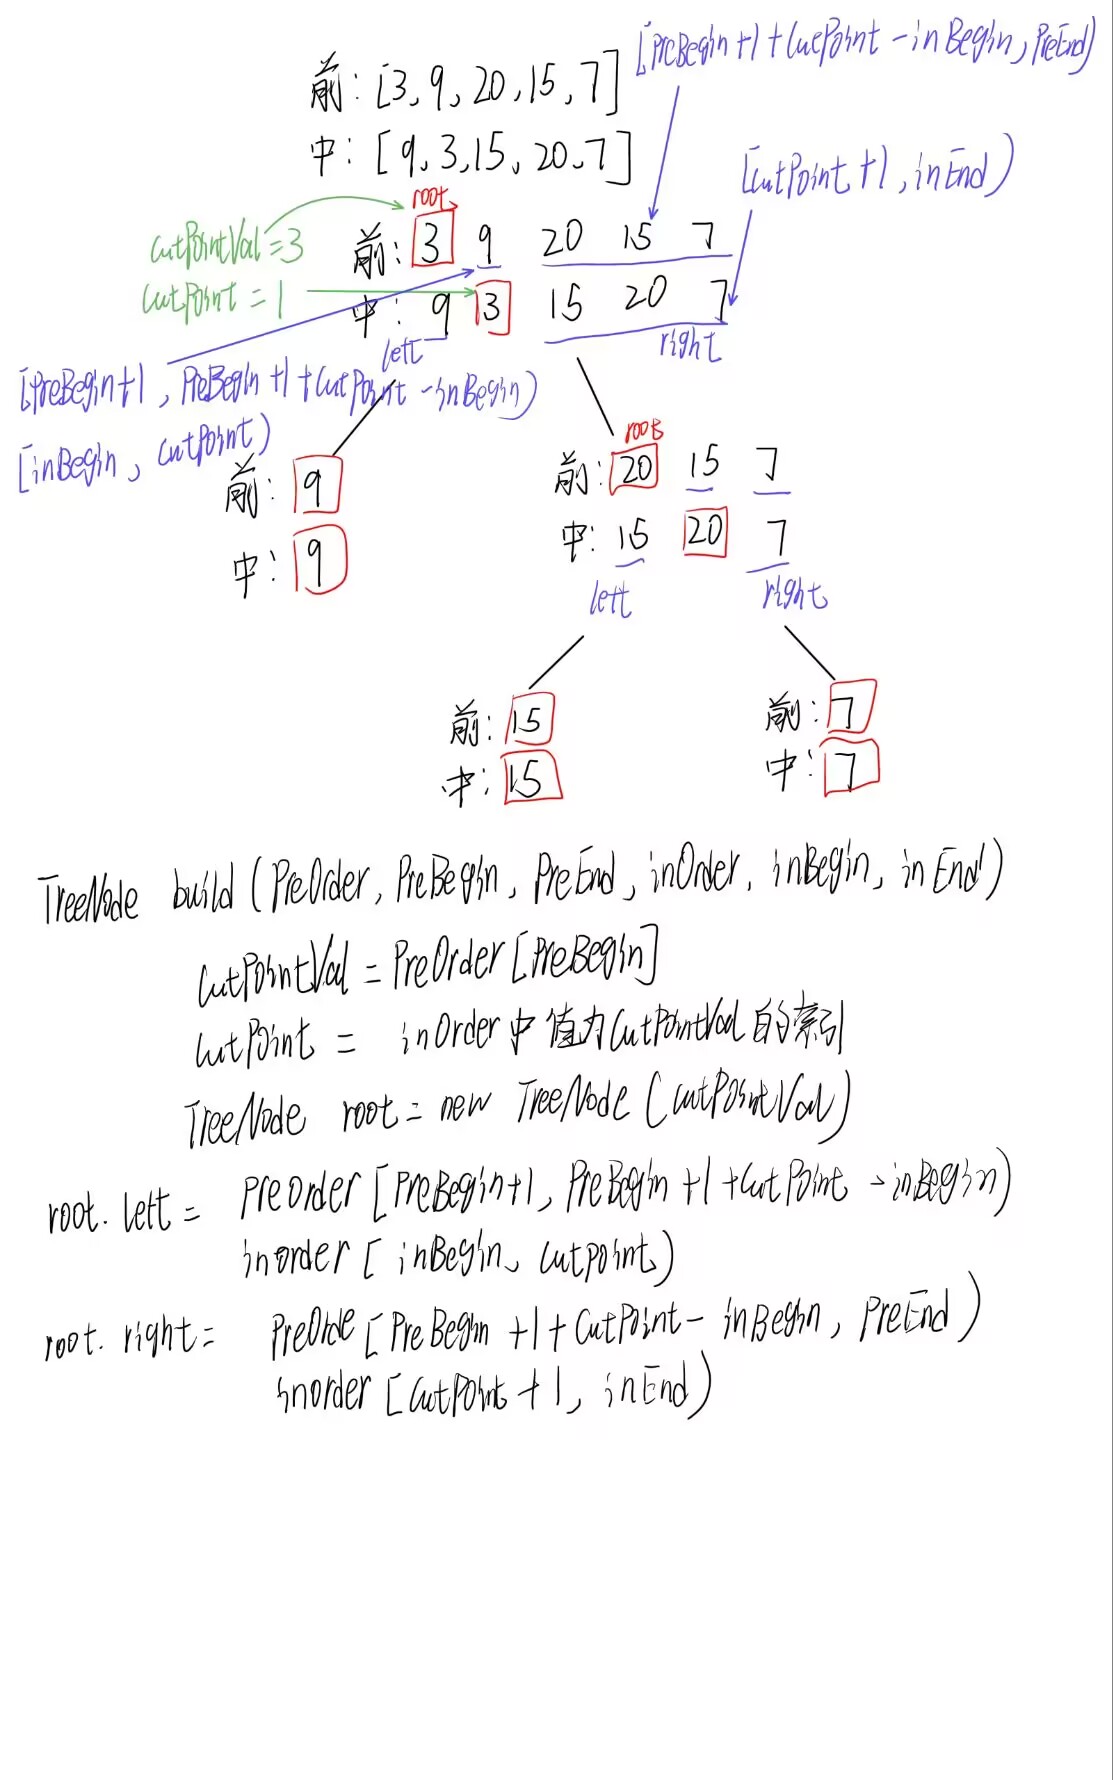 [PreBegin+1+CutPoint-inBegin, PreEnd)
前: [3, 9, 20, 15, 7]
中: [9, 3, 15, 20, 7]
[CutPoint+1, inEnd)
root
cutPointVal=3
前: 3 9 20 15 7
cutPoint = 1
中: 9 3 15 20 7
left
right
[PreBegin+1, PreBegin+1+CutPoint-inBegin)
[inBegin, CutPoint)
root
前: 9
前: 20 15 7
中: 9
中: 15 20 7
left
right
前: 15
前: 7
中: 15
中: 7
TreeNode build (PreOrder, PreBegin, PreEnd, inOrder, inBegin, inEnd)
CutPointVal = PreOrder[PreBegin]
CutPoint = inOrder中值为CutPointVal的索引
TreeNode root = new TreeNode (CutPointVal)
root.left = PreOrder [PreBegin+1, PreBegin+1+CutPoint-inBegin)
inorder [inBegin, Cutpoint)
root.right = PreOrde [PreBegin+1+CutPoint-inBegin, PreEnd)
inorder [CutPoint+1, inEnd)